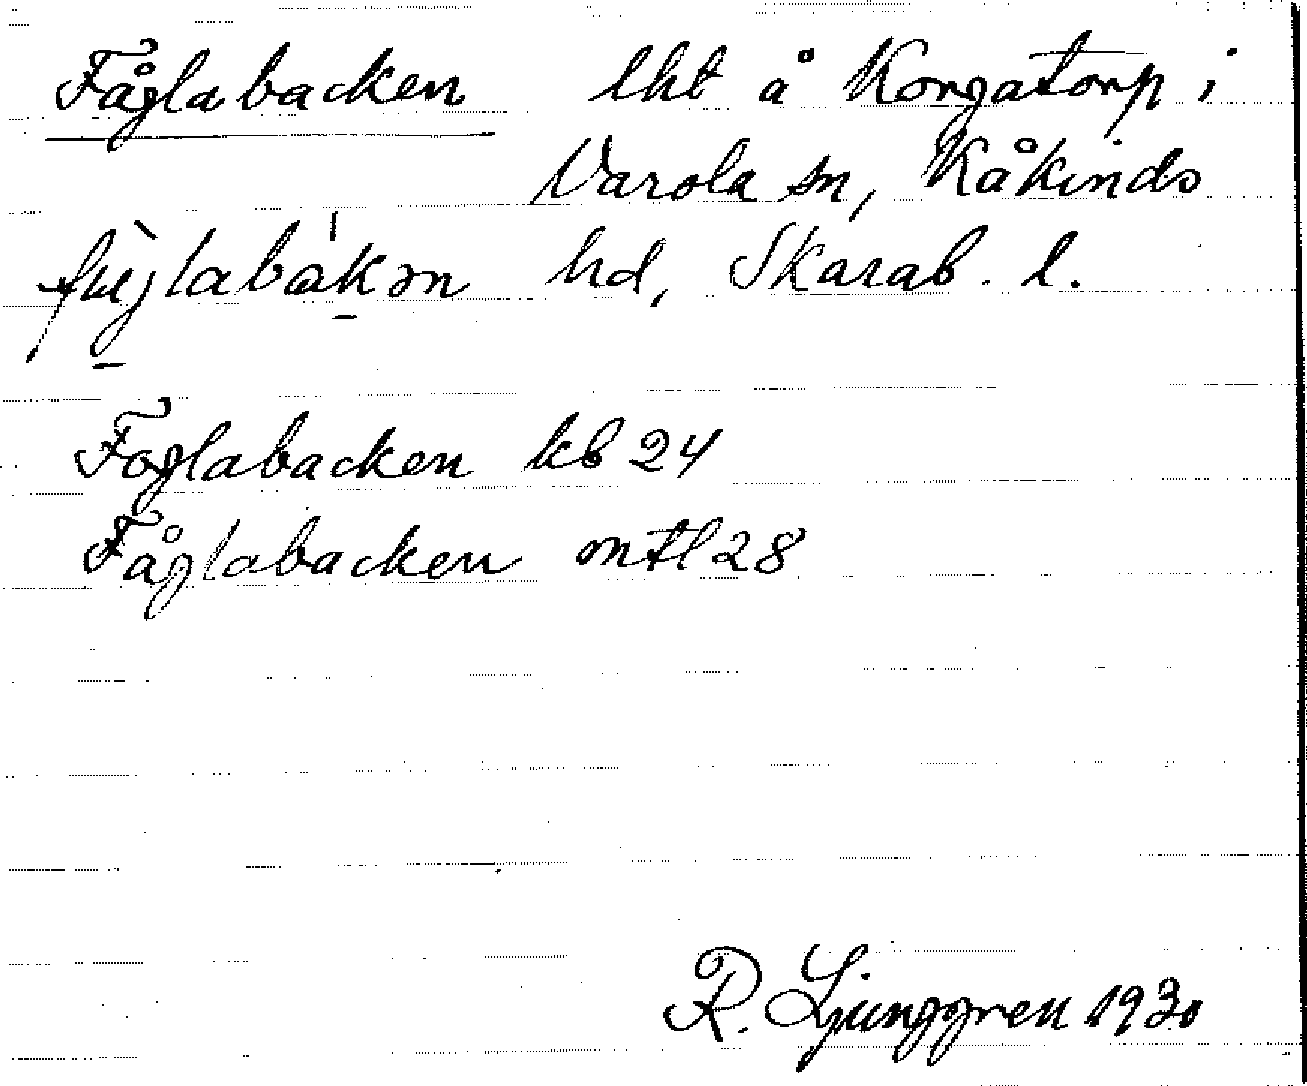 Fåglabacken lht å Kongatorp i
Varola sn, Kåkinds
hd, Skarab. l.
Foglabacken kb 24
Fåglabacken mtl 28
R. Ljunggren 1930